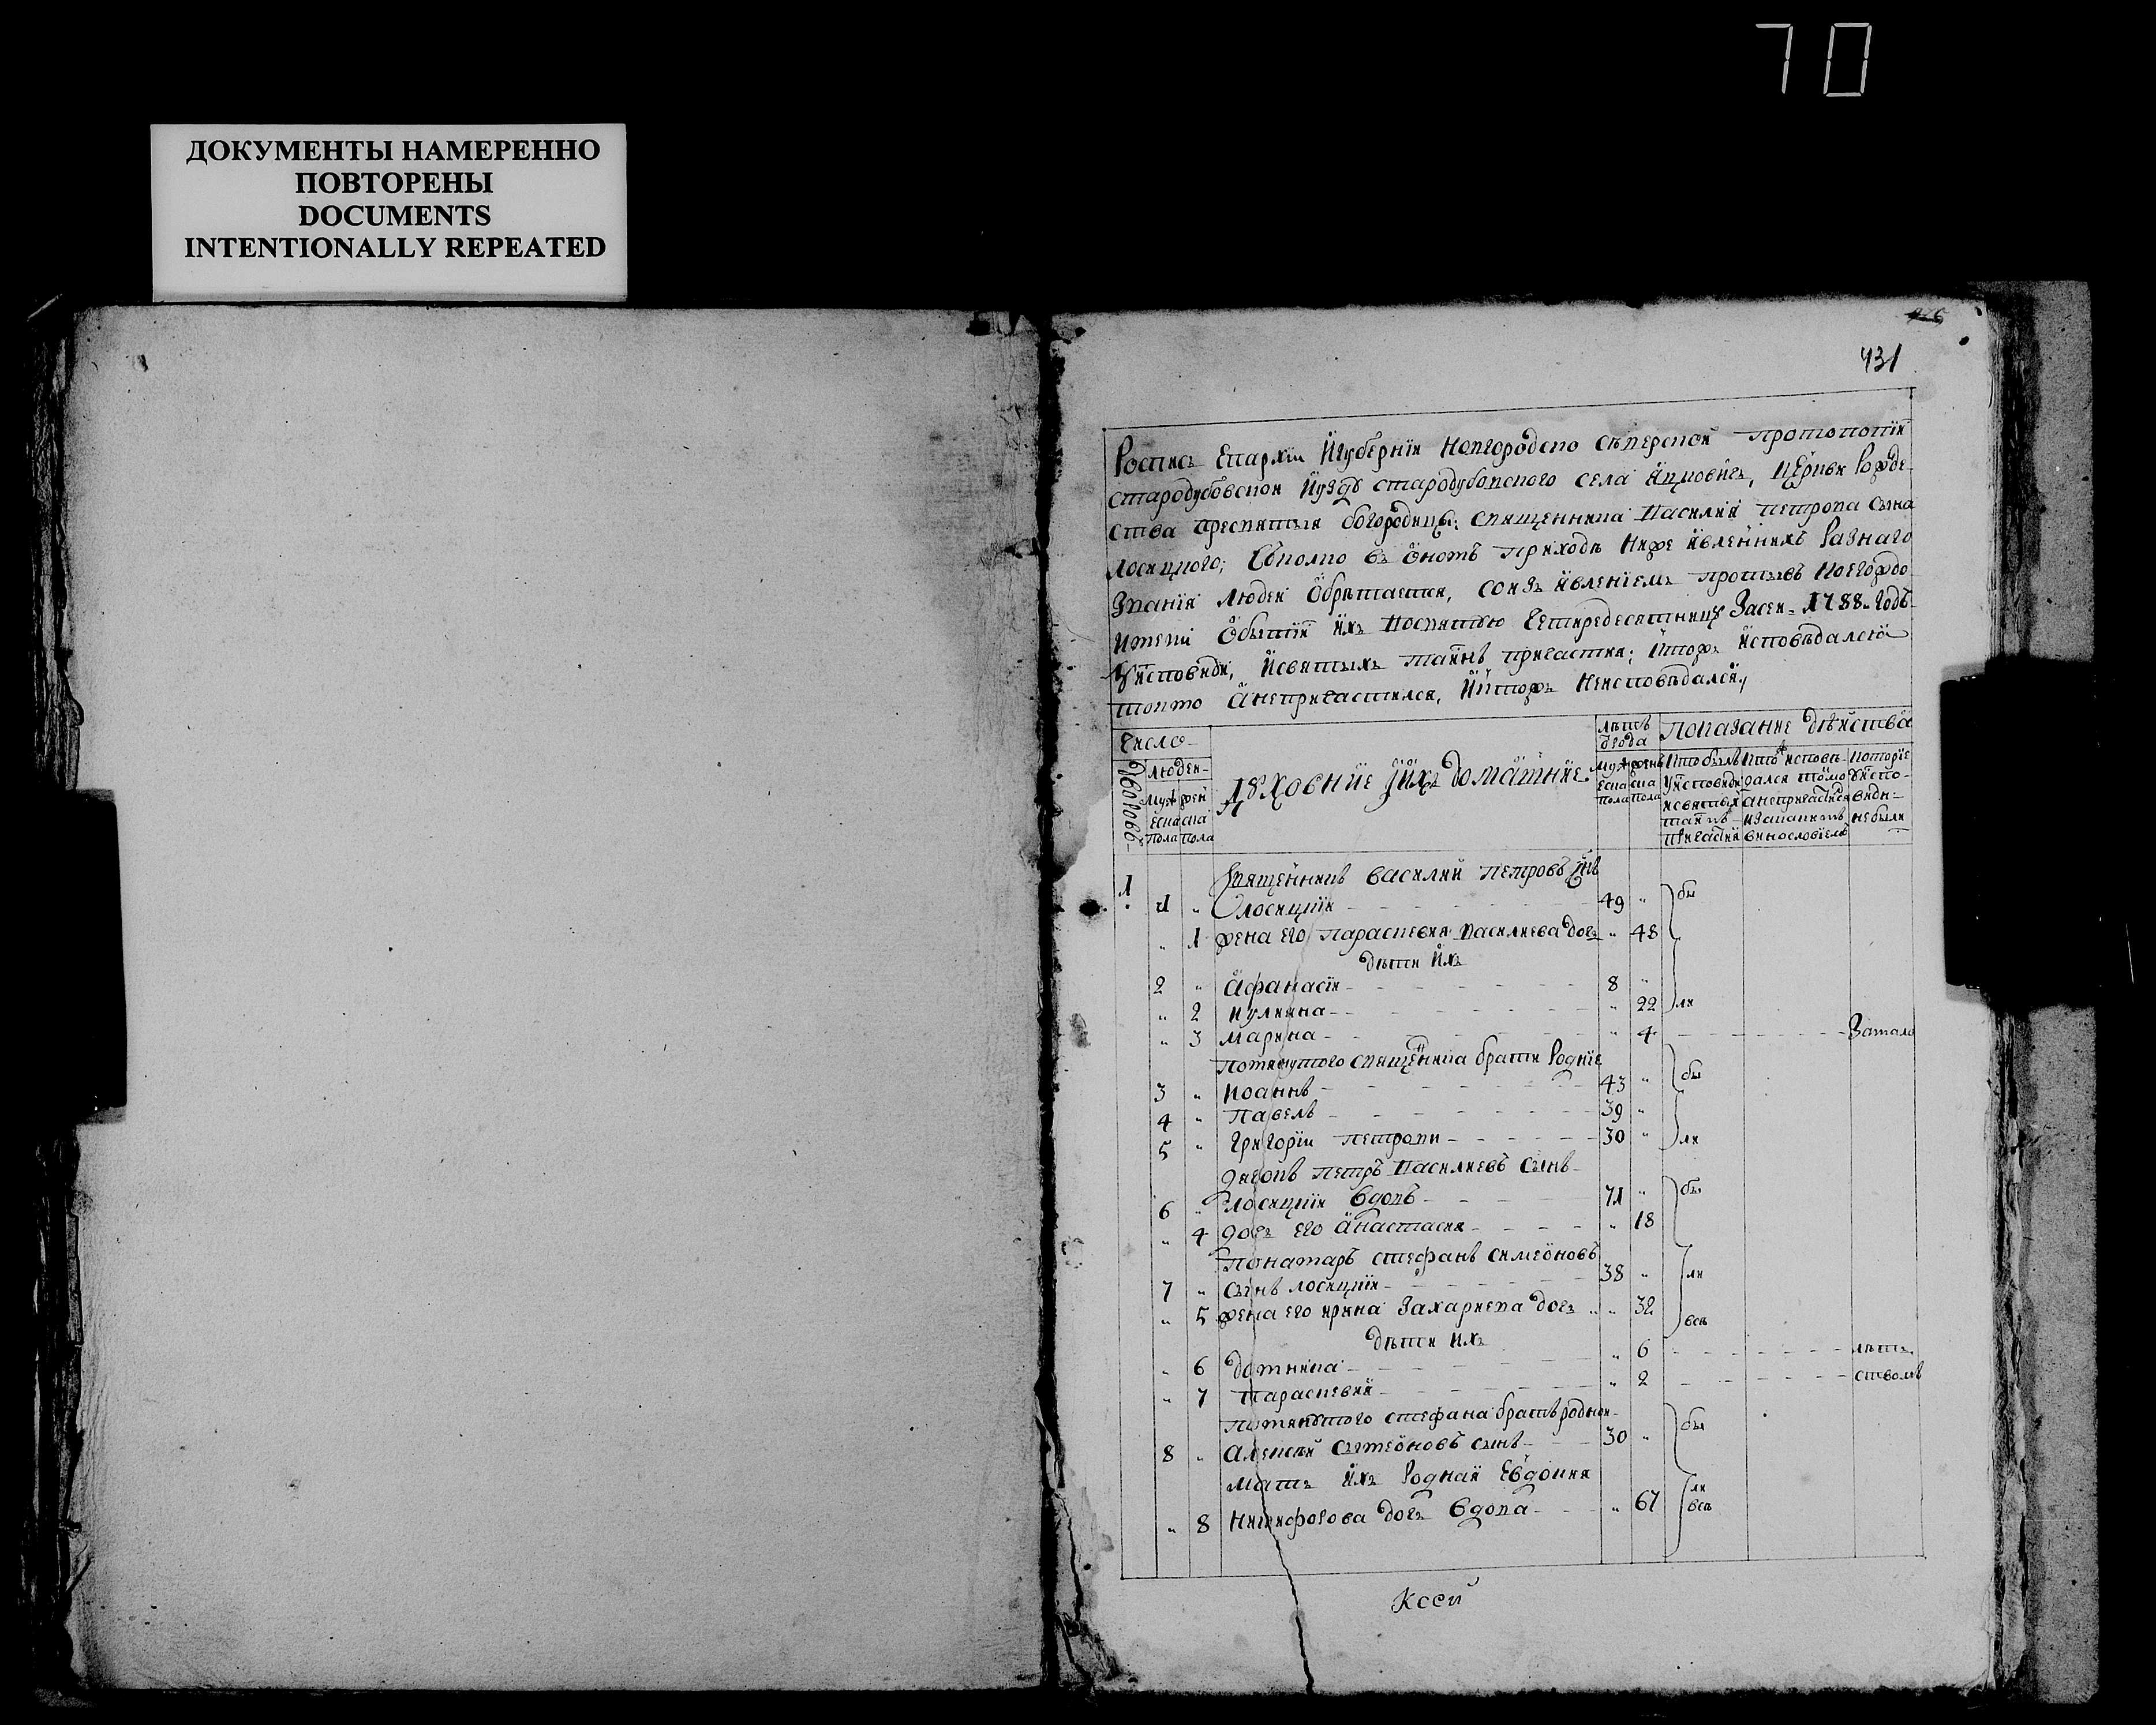 70
ДОКУМЕНТЫ НАМЕРЕННО
ПОВТОРЕНЫ
DOCUMENTS
INTENTIONALLY REPEATED
431
Роспись Епархїи Игубернїи Новгородско Сѣверской протопопїи
стародубовской Иуѣзду стародубовского села Яцковичъ, Церкви Рожде-
ства пресвятыя богородицы; священника Василия петрова сына
лосицкого; Сколко въ ономъ приходѣ Ниже явленнихъ Разнаго
Званїя людей Обрѣтается, сонзъ явленїемъ противъ Коегождо
имени Обытїи ихъ Восвятую Четиредесятницу Засей 1788 Годъ
Уисповѣди, Исвятыхъ таинъ причастия; Икто жъ исповѣдался
токмо Анепричастился, Икто жъ Неисповѣдался
Число
Дворовъ
людей
муж
еска
пола
жен
ска
пола
Духовние Иихъ домашние
лѣтъ
ѿрода
муж
еска
пола
женъ
ска
пола
показание дѣйства
Кто былъ
Уисповѣди
исвятыхъ
таинъ
причастия
Кто исповѣ-
дался токмо
анепричастился
изакакимъ
винословїемъ
Которїе
Уиспо-
вѣди
небыли
1
Священникъ василий петровъ снъ
1 " лосицкїи 49 " бы
" 1 жена его параскевия василиева дочь " 48
дѣти ихъ
2 " Афанасїи 8 "
" 2 иулияна " 22 ли
" 3 марина " 4 Замало
помянутого священика брати Роднїе
3 " Иоаннъ 43 " бы
4 " Павелъ 39 "
5 " Григорїи петрови 30 " ли
Диконъ петръ василиевъ сынъ
6 " лосицкїи вдовъ 71 " бы
" 4 дочь его анастасия " 18
Понамаръ стефанъ симеоновъ
7 " сынъ лосицкїи 38 " ли
" 5 жена его ирина Захариева дочь " 32 всѣ
дѣти ихъ
" 6 домникиа " 6 лѣт
" 7 параскевия " 2 ствомъ
помянутого стефана братъ родной
8 " Алексѣй симеоновъ сынъ 30 " бы
мать ихъ Родная Евдокия
" 8 Никифорова дочь вдова " 67 ли всѣ
Ксеи